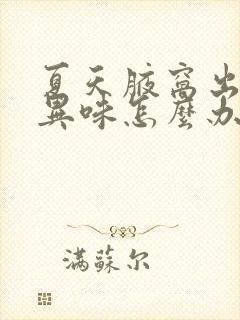 夏天腋窩出
異味怎麼办
滿蘇尔